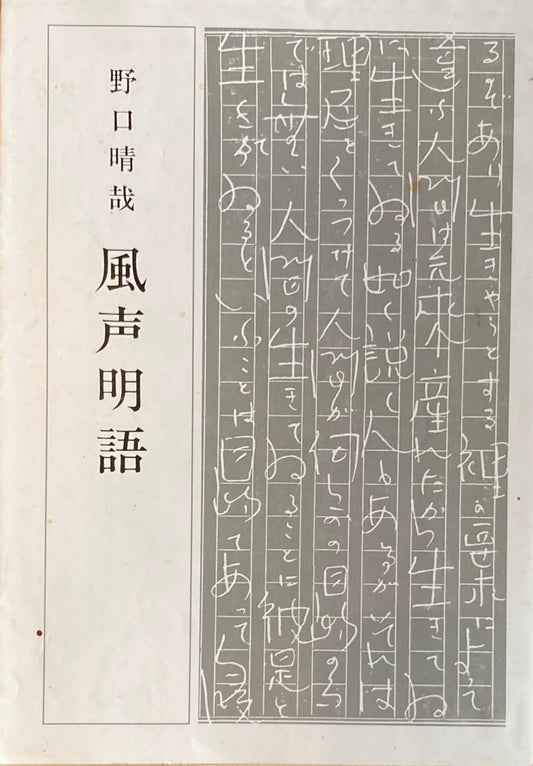 野口晴哉 風声明語
生きてゐるといふことは目的であつて手段
では無い 人間の生きてゐることに彼是と
理屈をくつつけて人間が何らかの目的の為
に生きてゐる如く説く人もあるがそれは
違ふ 人間は元来、産れたから生きてゐ
るのであり生きやうとする裡の要求によつて